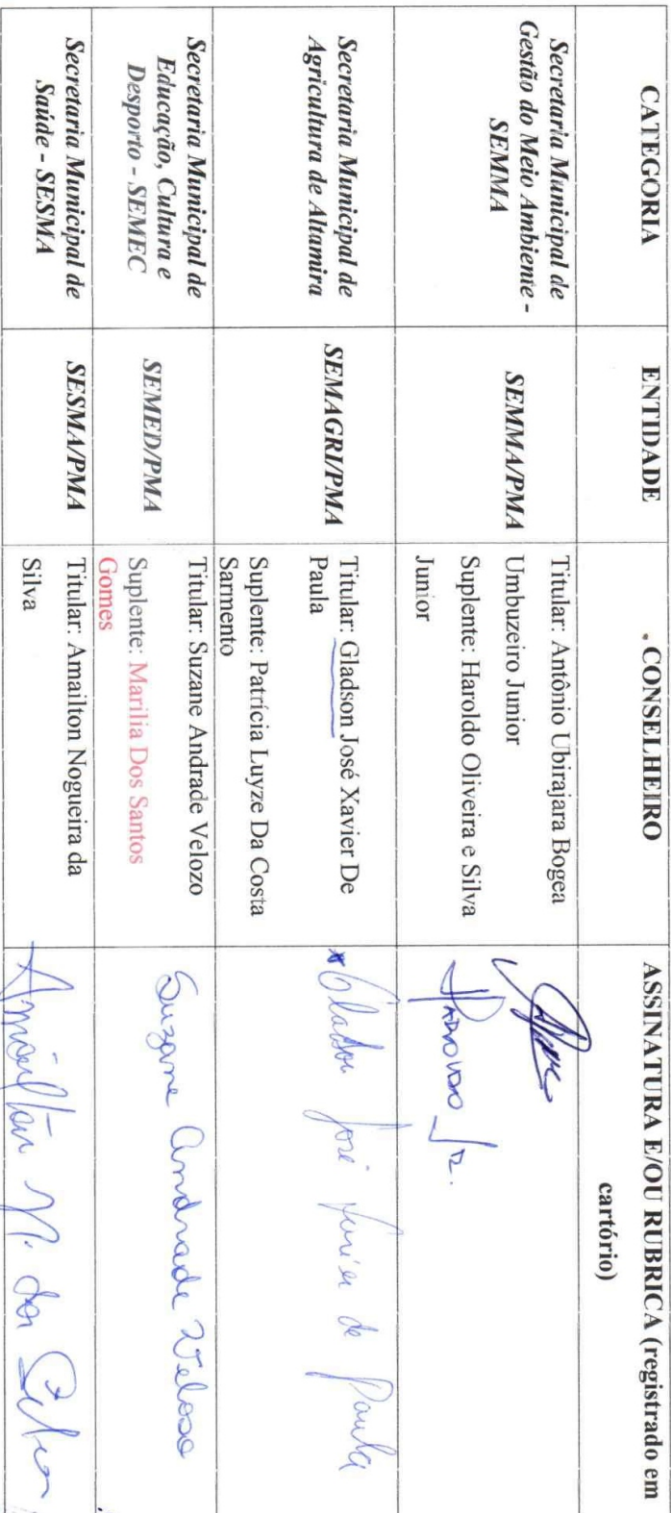 CATEGORIA
ENTIDADE
CONSELHEIRO
ASSINATURA E/OU RUBRICA (registrado em
cartório)
Secretaria Municipal de
Gestão do Meio Ambiente -
SEMMA
SEMMA/PMA
Titular: Antônio Ubirajara Bogea
Umbuzeiro Junior
Suplente: Haroldo Oliveira e Silva
Junior
Haroldo Jr.
Secretaria Municipal de
Agricultura de Altamira
SEMAGRI/PMA
Titular: Gladson José Xavier De
Paula
Suplente: Patrícia Luyze Da Costa
Sarmento
Gladson José Xavier de Paula
Secretaria Municipal de
Educação, Cultura e
Desporto - SEMEC
SEMED/PMA
Titular: Suzane Andrade Velozo
Suplente: Marilia Dos Santos
Gomes
Suzane Andrade Veloso
Secretaria Municipal de
Saúde - SESMA
SESMA/PMA
Titular: Amailton Nogueira da
Silva
Amailton N. da Silva